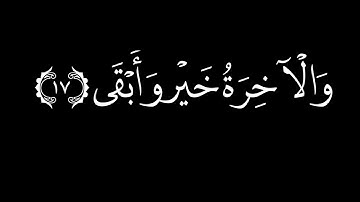 وَالْآخِرَةُ خَيْر وَأَبْقَى ﴿١٧﴾